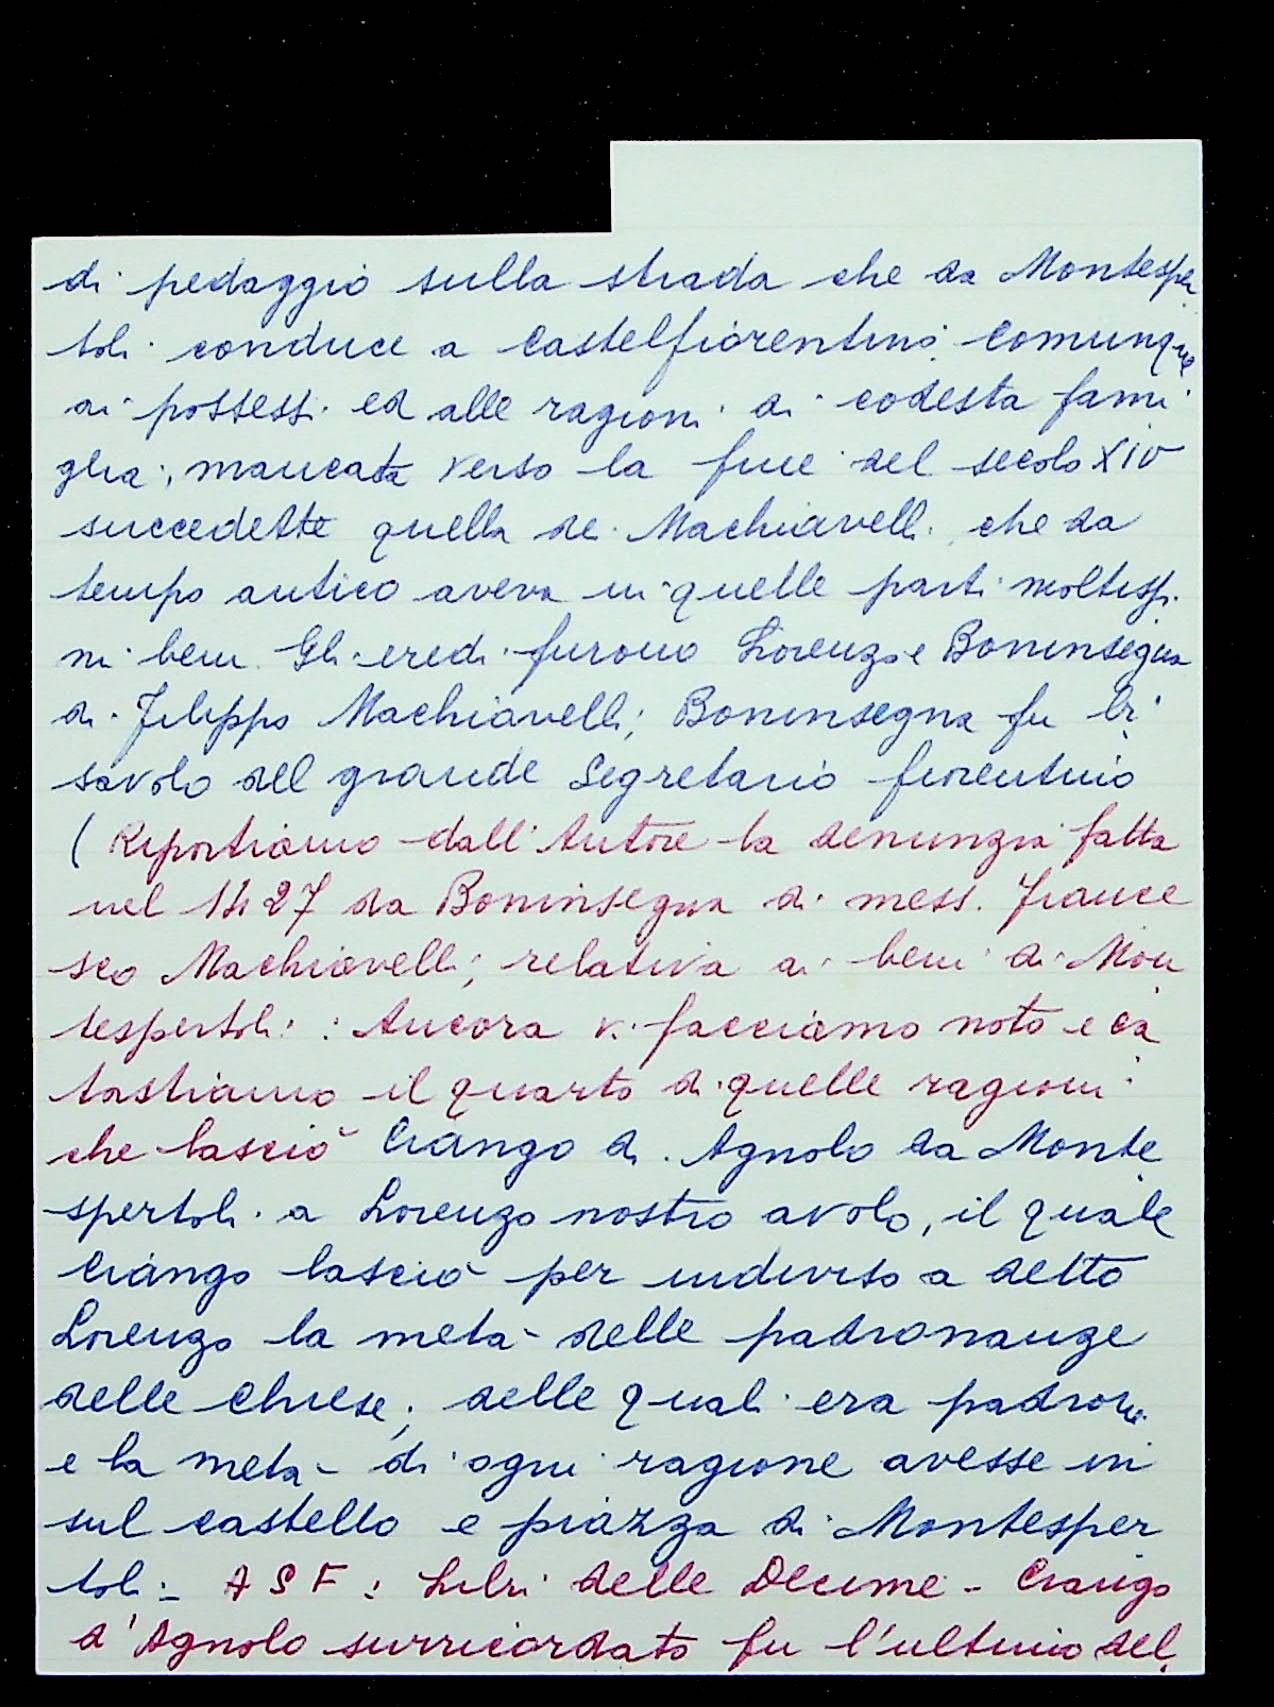 di pedaggio sulla strada che da Montesper
toli conduce a Castelfiorentino. Comunque
ai possessi ed alle ragioni di codesta fami
glia, mancata verso la fine del secolo XIV
succedette quella dei Machiavelli, che da
tempo antico aveva in quelle parti moltissi
mi beni. Gli eredi furono Lorenzo e Boninsegna
di Filippo Machiavelli; Boninsegna fu bi
savolo del grande Segretario fiorentino
(Riportiamo dall'Autore la denunzia fatta
nel 1427 da Boninsegna di mess. France
sco Machiavelli; relativa ai beni di Mon
tespertoli: Ancora vi facciamo noto e ca
tastiamo il quarto di quelle ragioni
che lasciò Ciango di Agnolo da Monte
spertoli a Lorenzo nostro avolo, il quale
Ciango lasciò per indiviso a detto
Lorenzo la metà delle padronanze
delle Chiese, delle quali era padrone
e la metà di ogni ragione avesse in
sul castello e piazza di Montesper
toli - ASF: Libri delle Decime - Ciango
d'Agnolo surricordato fu l'ultimo del